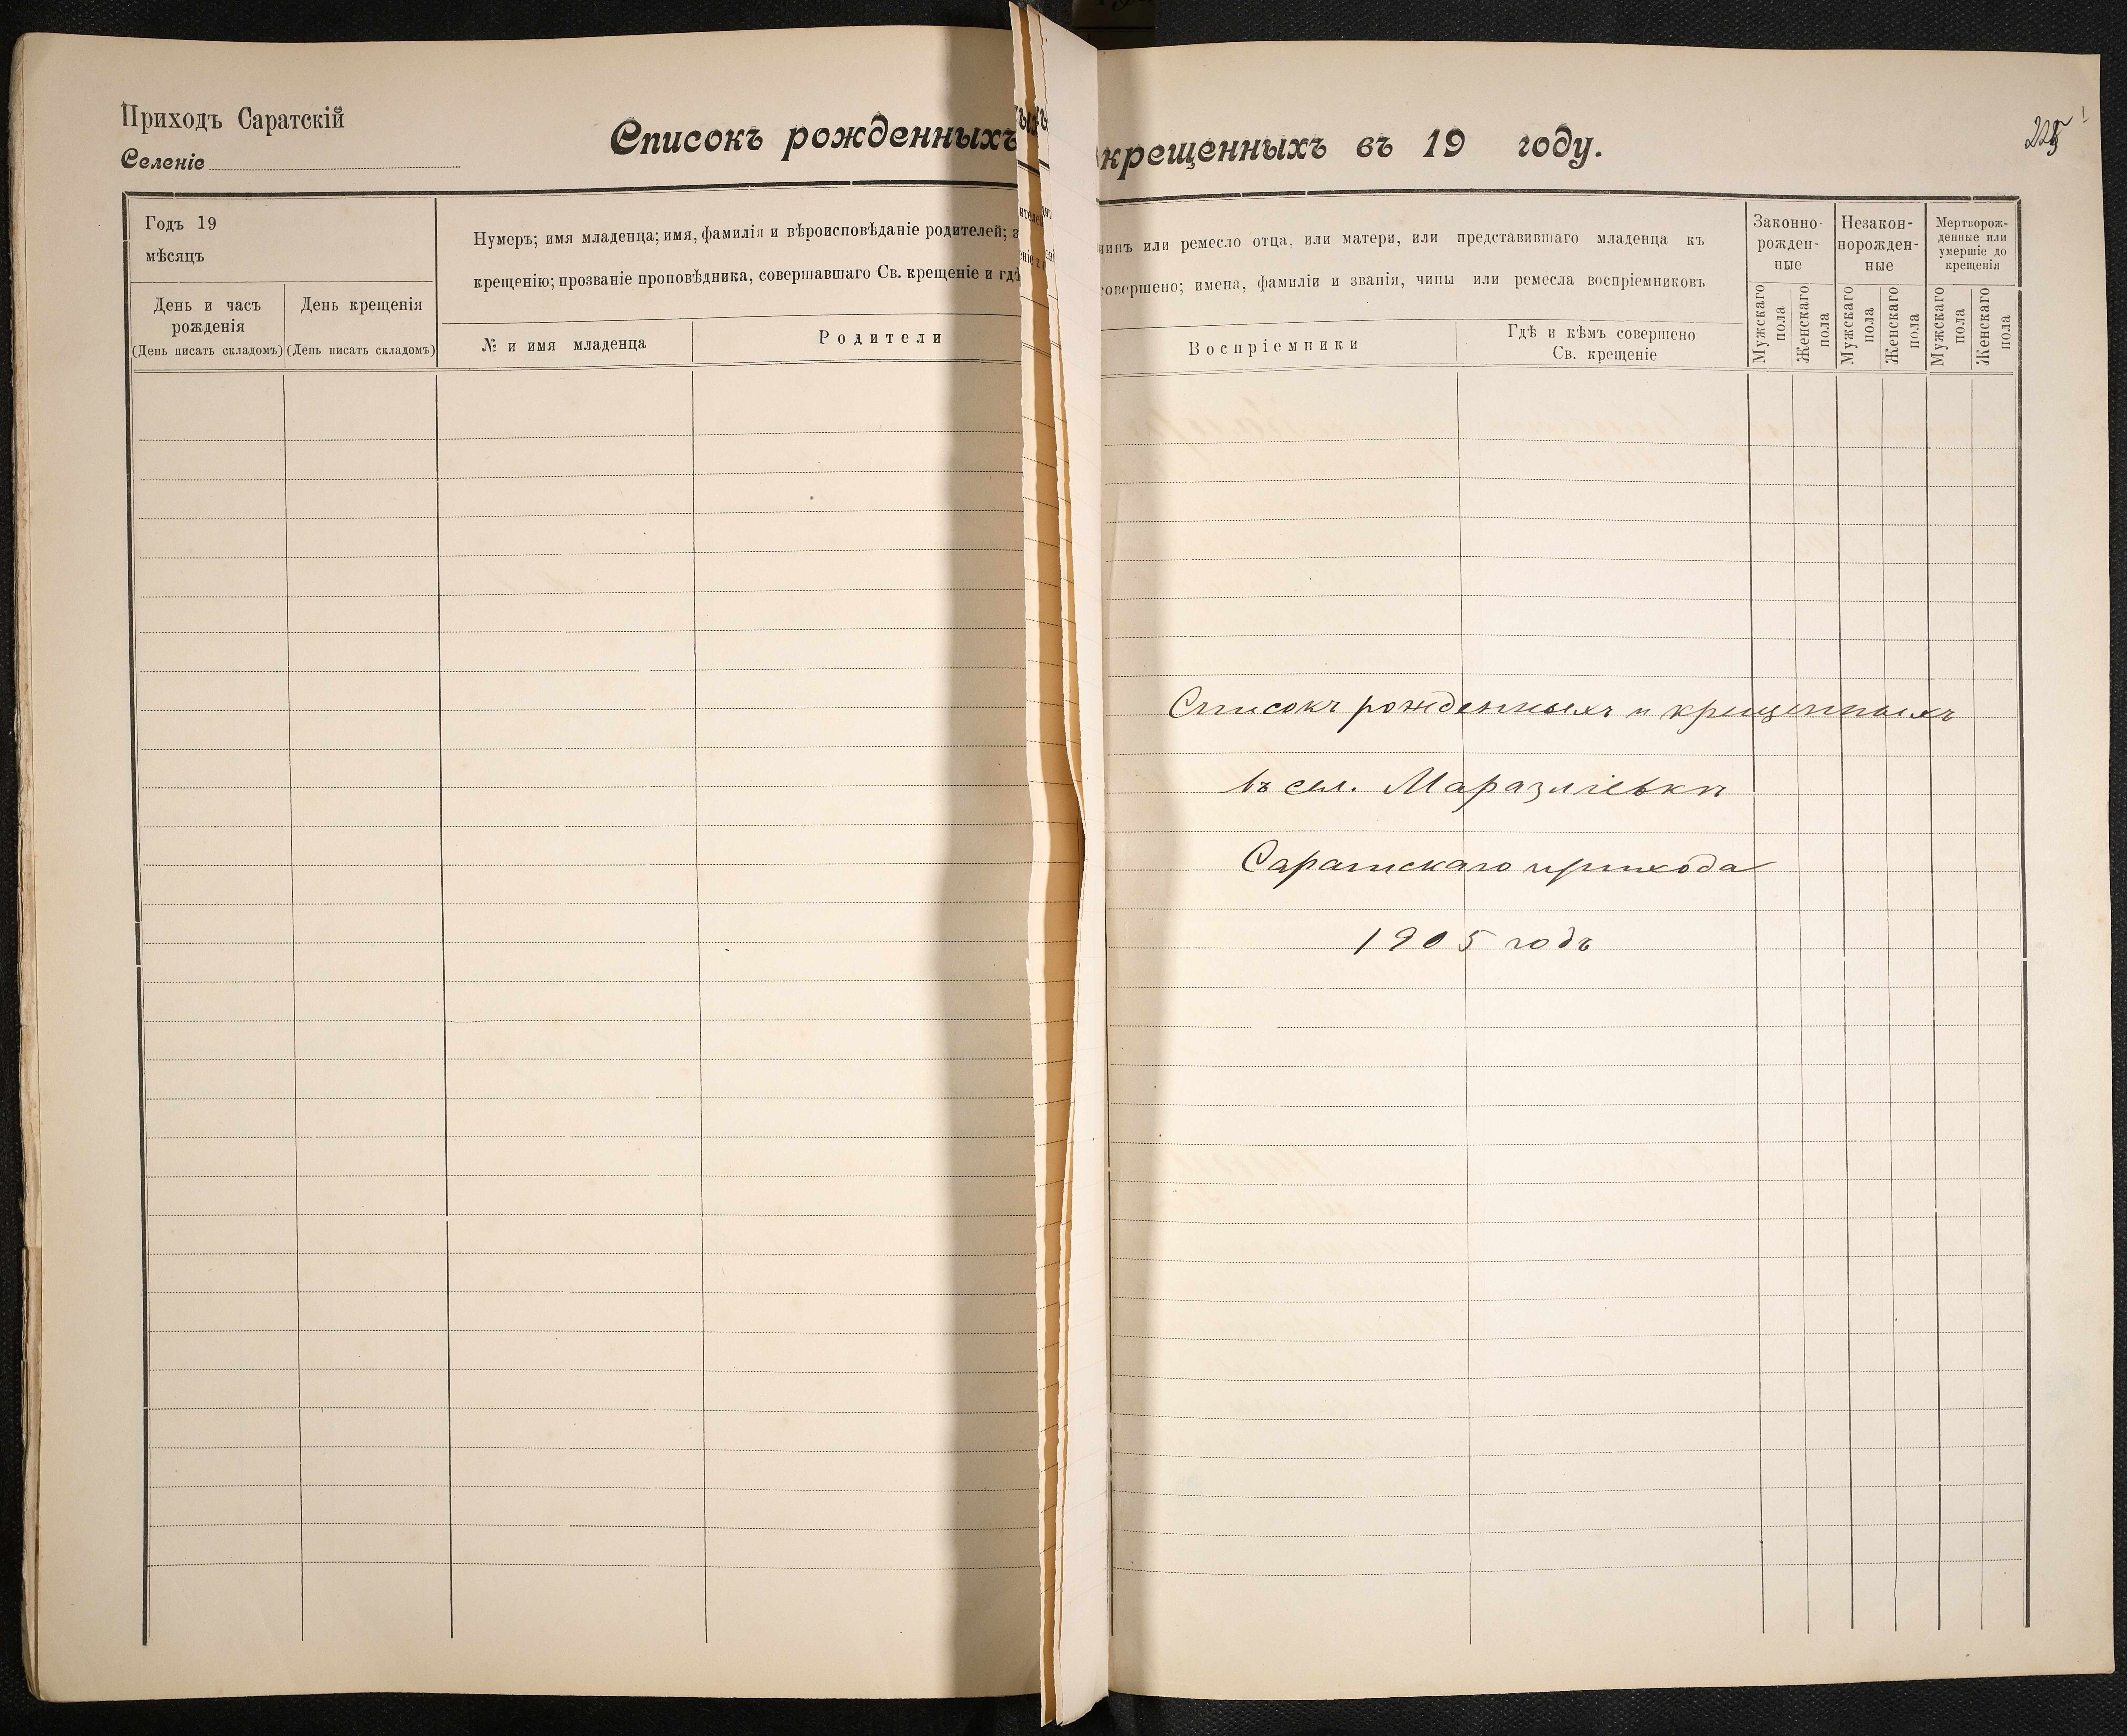 Приходъ Саратскій
Селеніе
Списокъ рожденныхъ
крещенныхъ въ 19 году.
Годъ 19
мѣсяцъ
День и часъ
рожденія
(День писать складомъ)
День крещенія
(День писать складомъ)
Нумеръ; имя младенца; имя, фамилія и вѣроисповѣданіе родителей;
крещенію; прозваніе проповѣдника, совершавшаго Св. крещеніе и гдѣ
№ и имя младенца
Родители
или ремесло отца, или матери, или представившаго младенца къ
совершено; имена, фамиліи и званія, чины или ремесла воспріемниковъ
Воспріемники
Гдѣ и кѣмъ совершено
Св. крещеніе
Законно-
рожден-
ные
Незакон-
норожден-
ные
Мертворож-
денные или
умершіе до
крещенія
Мужскаго
пола
Женскаго
пола
Мужскаго
пола
Женскаго
пола
Мужскаго
пола
Женскаго
пола
Списокъ рожденныхъ и крещенныхъ
въ сел. Маразліевкѣ
Саратскаго прихода
1905 годъ